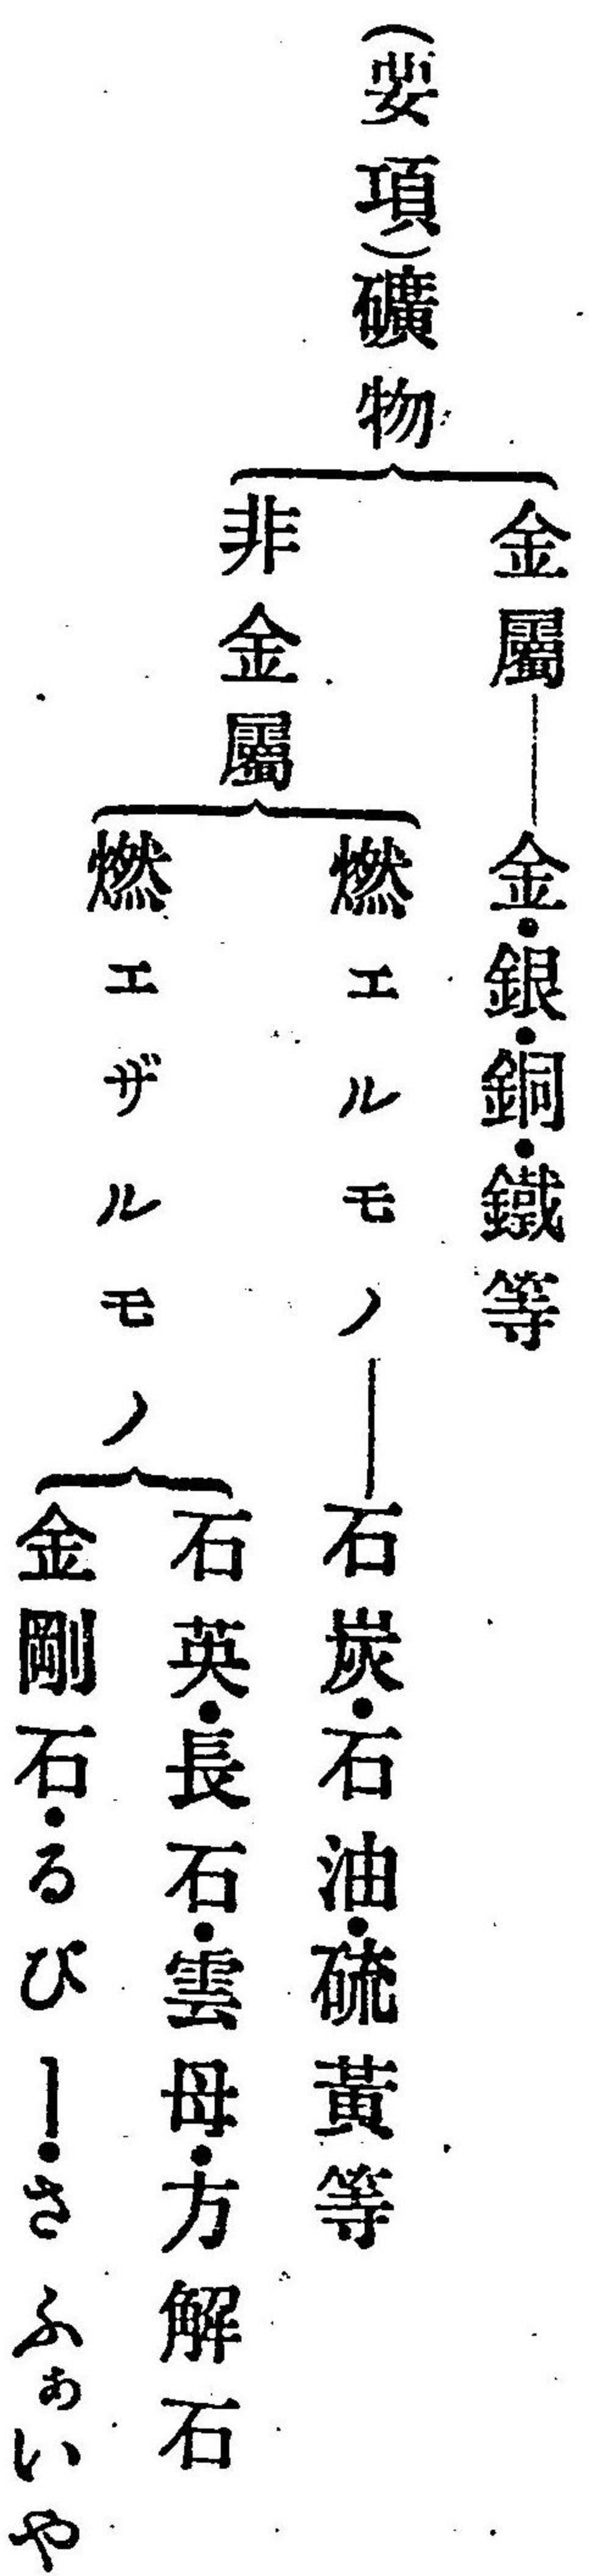 (要項)礦物
金屬——金・銀・銅・鐵等
非金屬
燃エルモノ——石炭・石油・硫黃等
燃エザルモノ
石英・長石・雲母・方解石
金剛石・るびー・さふぁいや